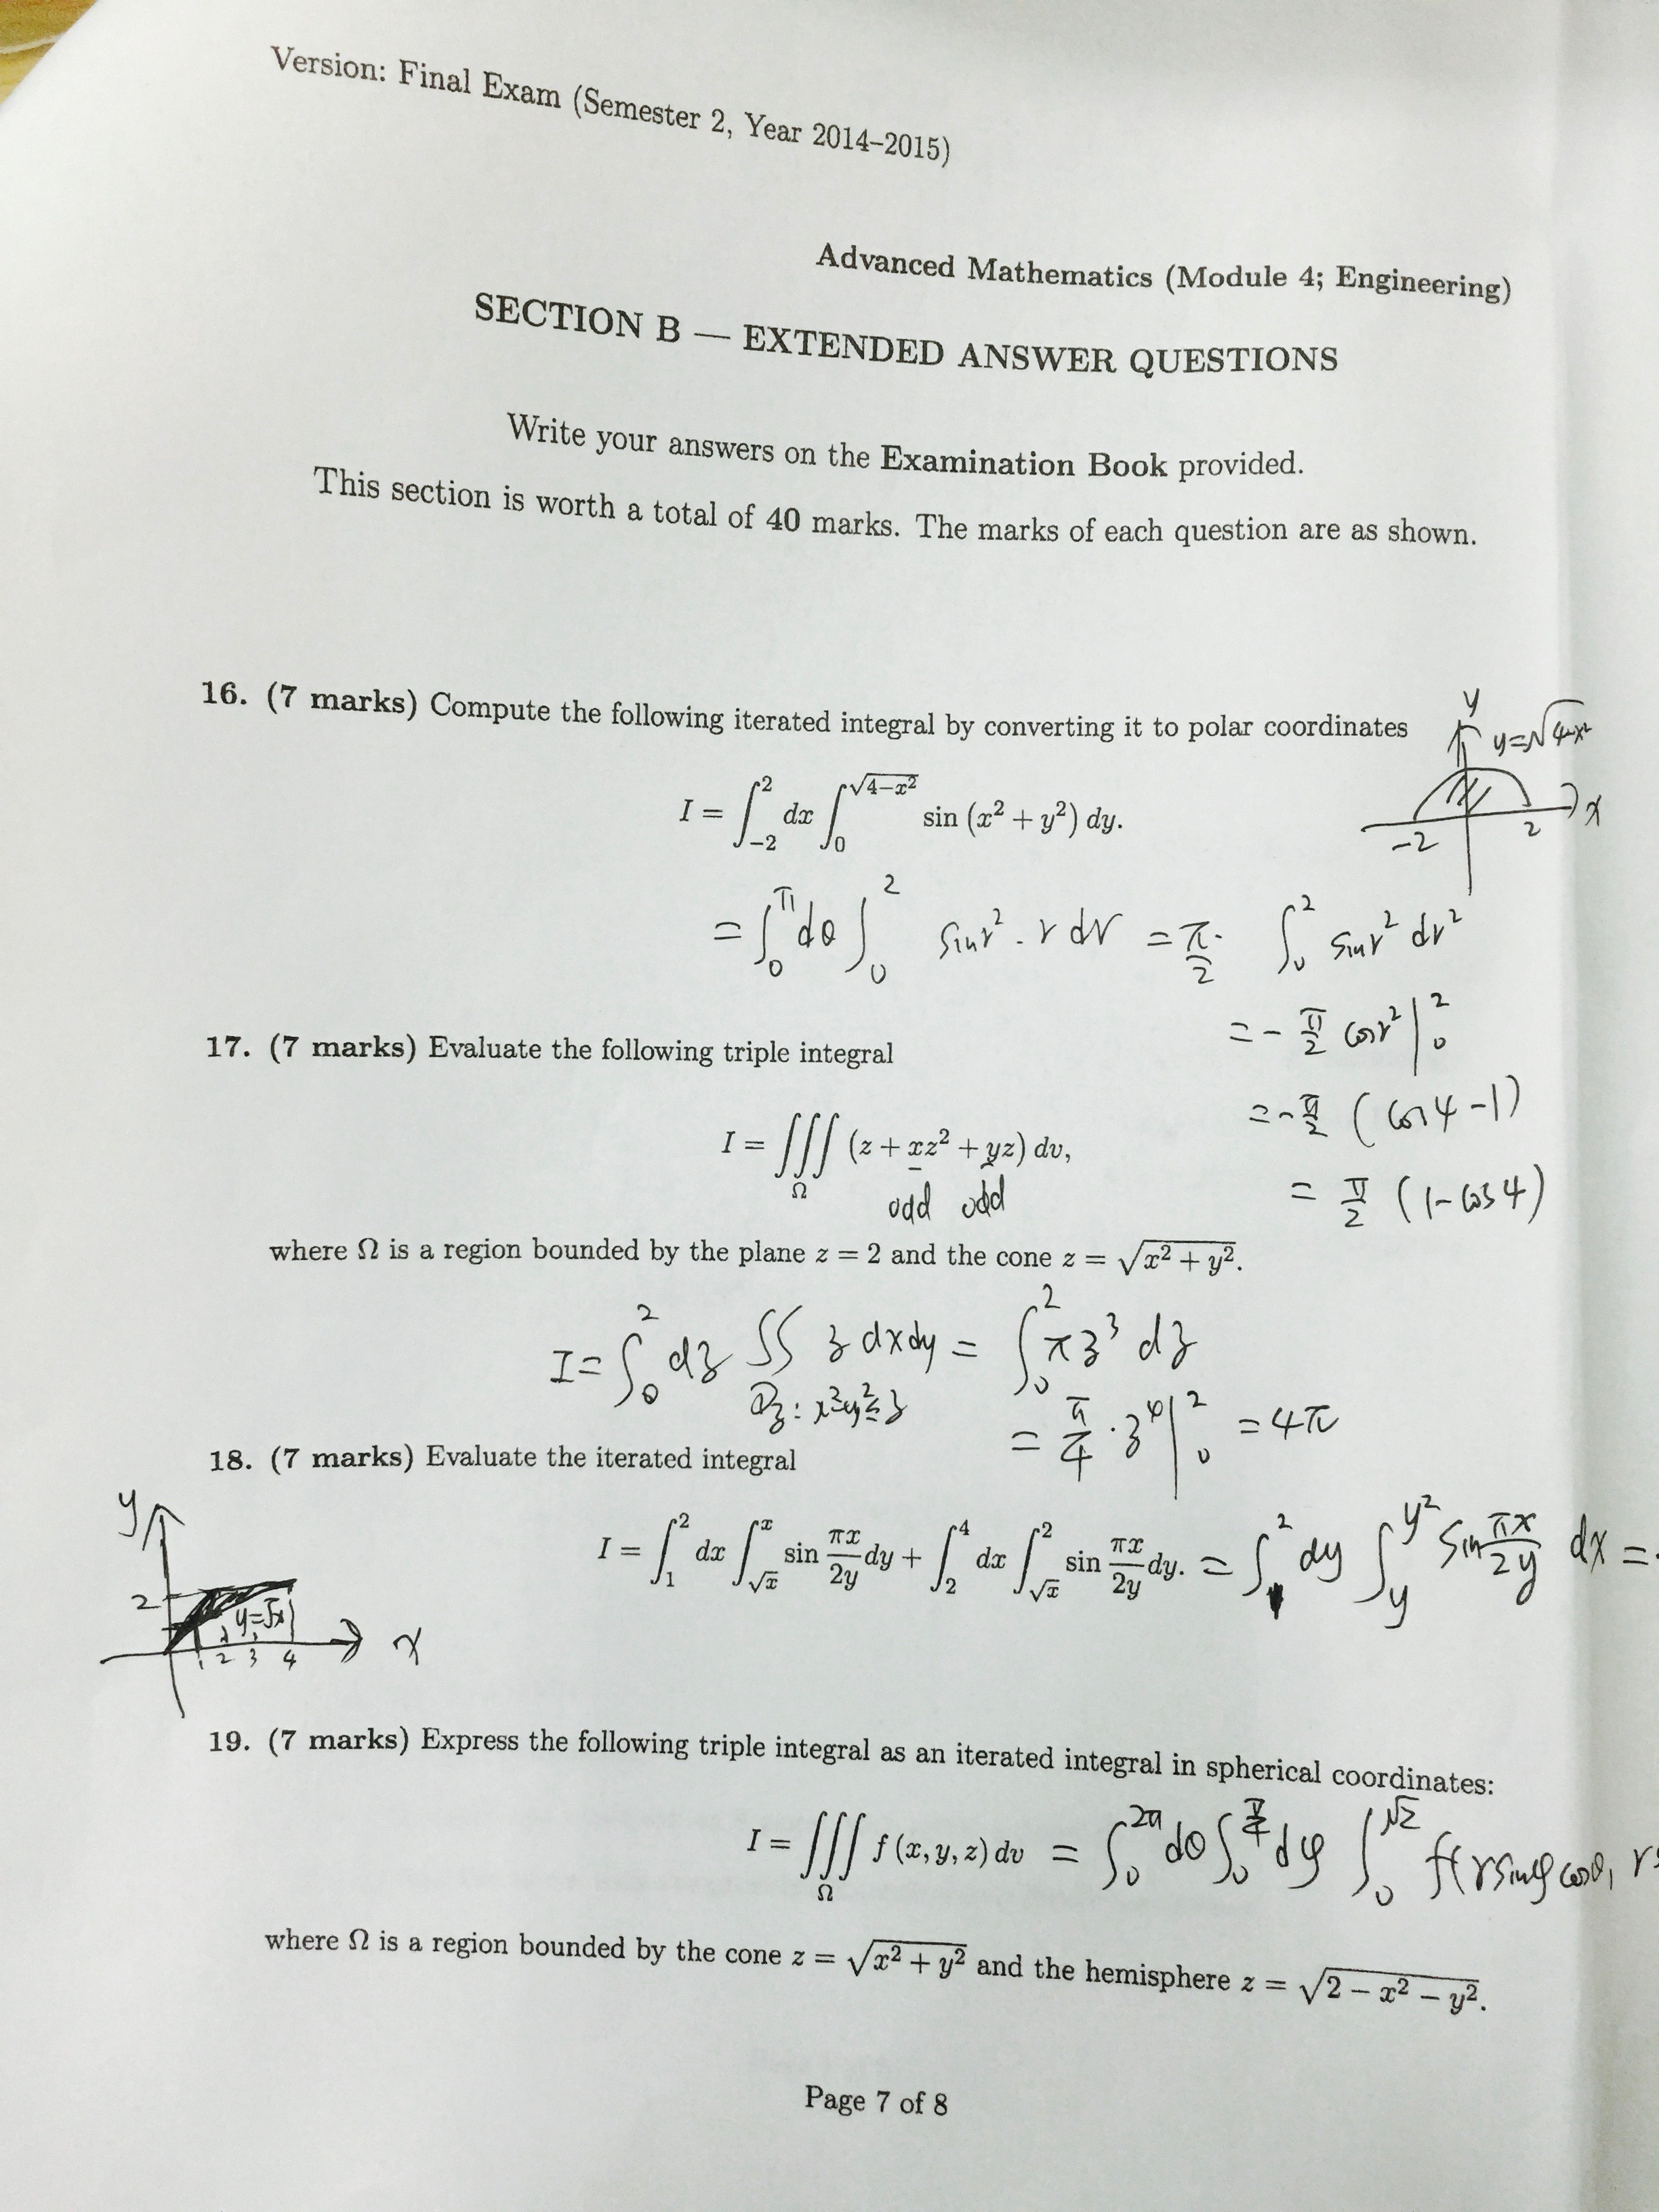 Version: Final Exam (Semester 2, Year 2014–2015)
Advanced Mathematics (Module 4; Engineering)
SECTION B — EXTENDED ANSWER QUESTIONS
Write your answers on the Examination Book provided.
This section is worth a total of 40 marks. The marks of each question are as shown.
16. (7 marks) Compute the following iterated integral by converting it to polar coordinates
y
y=√(4-x²)
x
-2 2
I = ∫_{-2}^{2} dx ∫_0^{√(4-x²)} sin (x² + y²) dy.
= ∫_0^π dθ ∫_0^2 sin r² · r dr = π/2 · ∫_0^2 sin r² dr²
= - π/2 cos r² |_0^2
= - π/2 (cos 4 - 1)
= π/2 (1 - cos 4)
17. (7 marks) Evaluate the following triple integral
I = ∭_Ω (z + xz² + yz) dv,
odd odd
where Ω is a region bounded by the plane z = 2 and the cone z = √(x² + y²).
I = ∫_0^2 dz ∬ z dxdy = ∫_0^2 πz³ dz
Dz: x²+y²≤z
= π/4 · z⁴ |_0^2 = 4π
18. (7 marks) Evaluate the iterated integral
I = ∫_1^2 dx ∫_{√x}^x sin πx/2y dy + ∫_2^4 dx ∫_{√x}^2 sin πx/2y dy. = ∫_1^2 dy ∫_y^{y²} sin πx/2y dx =
y
2
y=√x
1 2 3 4
x
19. (7 marks) Express the following triple integral as an iterated integral in spherical coordinates:
I = ∭_Ω f (x, y, z) dv = ∫_0^{2π} dθ ∫_0^{π/4} dφ ∫_0^{√2} f(r sinφ cosθ, r
where Ω is a region bounded by the cone z = √(x² + y²) and the hemisphere z = √(2 − x² − y²).
Page 7 of 8